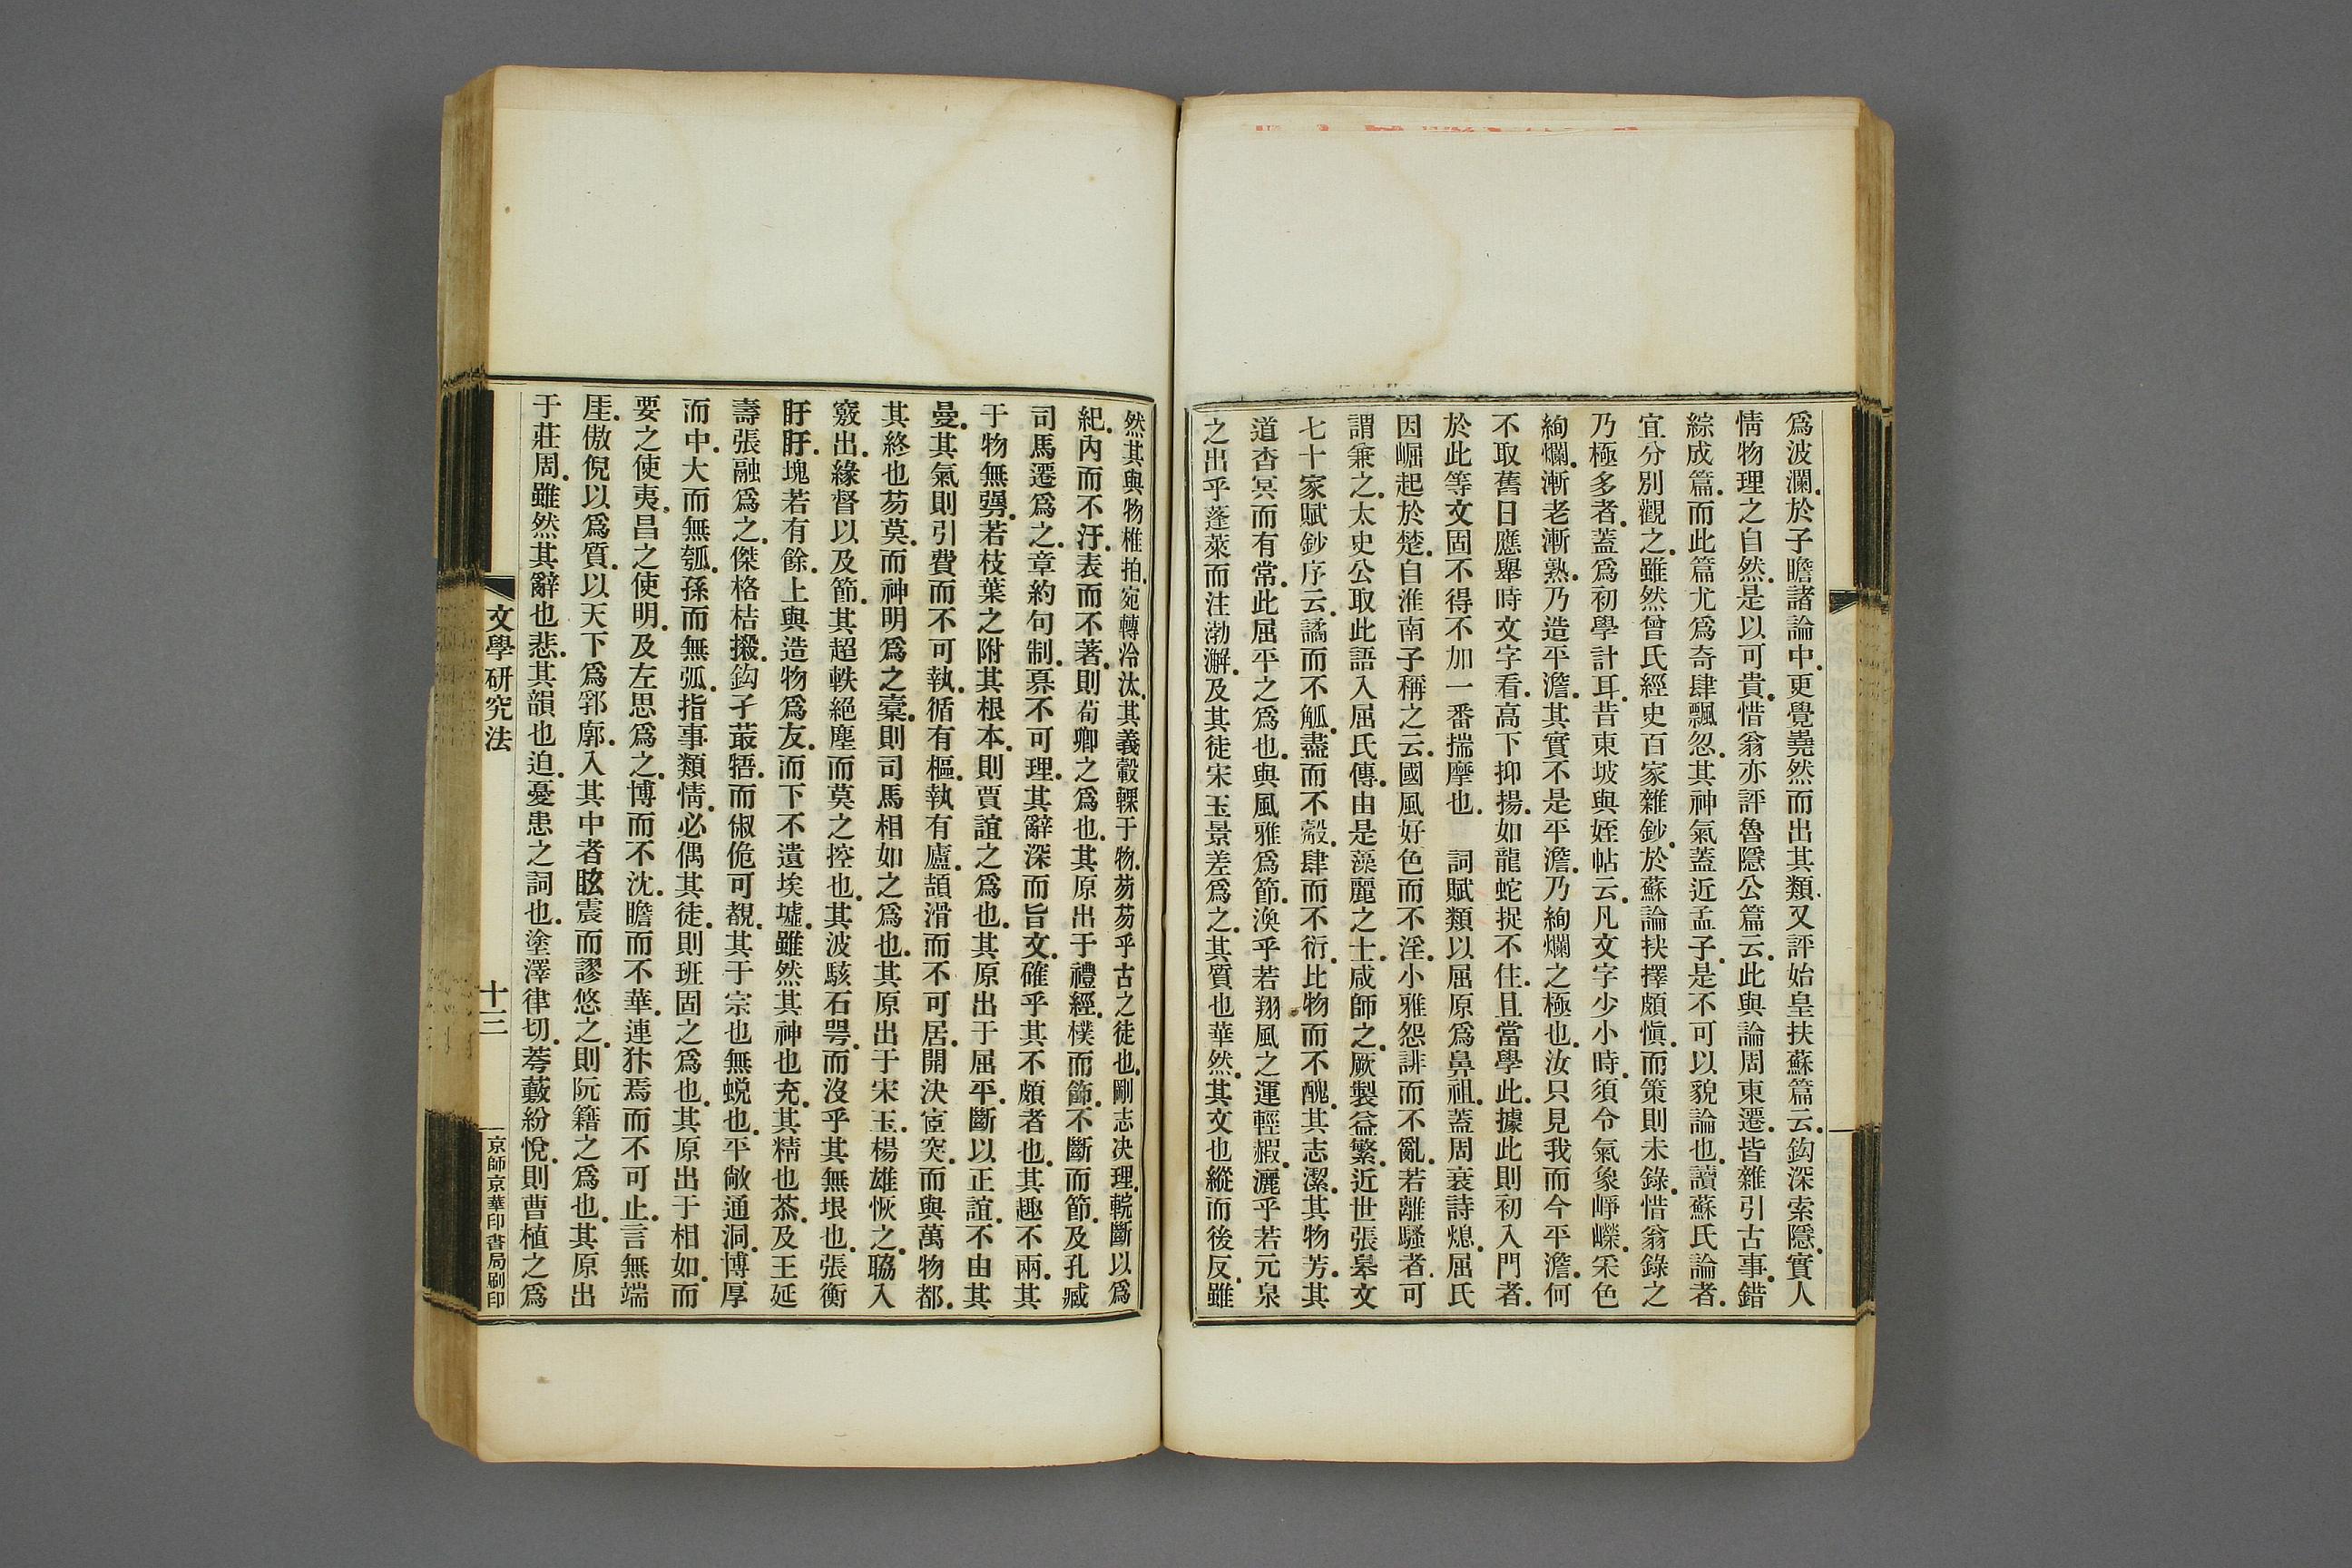 爲波瀾.於子瞻諸論中.更覺嶤然而出其類.又評始皇扶蘇篇云.鈎深索隱.實人
情物理之自然.是以可貴.惜翁亦評魯隱公篇云.此與論周東遷.皆雜引古事.錯
綜成篇.而此篇尤爲奇肆飄忽.其神氣蓋近孟子.是不可以貌論也.讀蘇氏論者.
宜分別觀之.雖然曾氏經史百家雜鈔.於蘇論抉擇頗愼.而策則未錄.惜翁錄之
乃極多者.蓋爲初學計耳.昔東坡與姪帖云.凡文字少小時.須令氣象崢嶸.采色
絢爛.漸老漸熟.乃造平澹.其實不是平澹.乃絢爛之極也.汝只見我而今平澹.何
不取舊日應舉時文字看.高下抑揚.如龍蛇捉不住.且當學此.據此則初入門者.
於此等文固不得不加一番揣摩也.　詞賦類以屈原爲鼻祖.蓋周衰詩熄.屈氏
因崛起於楚.自淮南子稱之云.國風好色而不淫.小雅怨誹而不亂.若離騷者.可
謂兼之.太史公取此語入屈氏傳.由是藻麗之士.咸師之.厥製益繁.近世張皋文
七十家賦鈔序云.譎而不觚.盡而不觳.肆而不衍.比物而不醜.其志潔.其物芳.其
道杳冥而有常.此屈平之爲也.與風雅爲節.渙乎若翔風之運輕赮.灑乎若元泉
之出乎蓬萊而注渤澥.及其徒宋玉景差爲之.其質也華然.其文也縱而後反.雖
然其與物椎拍.宛轉泠汰.其義轂輠于物.芴芴乎古之徒也.剛志決理.輐斷以爲
紀.內而不汙.表而不著.則荀卿之爲也.其原出于禮經.樸而飾.不斷而節.及孔臧
司馬遷爲之.章約句制.奡不可理.其辭深而旨文.確乎其不頗者也.其趣不兩.其
于物無㢊.若枝葉之附其根本.則賈誼之爲也.其原出于屈平.斷以正誼.不由其
曼.其氣則引費而不可執.循有樞.執有廬.頡滑而不可居.開決宧突.而與萬物都.
其終也芴莫.而神明爲之橐.則司馬相如之爲也.其原出于宋玉.楊雄恢之.脅入
竅出.緣督以及節.其超軼絕塵而莫之控也.其波駭石咢.而沒乎其無垠也.張衡
盱盱.塊若有餘.上與造物爲友.而下不遺埃墟.雖然其神也充.其精也苶.及王延
壽張融爲之.傑格拮摋.鈎孑菆牾.而俶佹可覩.其于宗也無蜕也.平敞通洞.博厚
而中.大而無瓠.孫而無弧.指事類情.必偶其徒.則班固之爲也.其原出于相如.而
要之使夷.昌之使明.及左思爲之.博而不沈.贍而不華.連犿焉而不可止.言無端
厓.傲倪以爲質.以天下爲郛廓.入其中者眩震而謬悠之.則阮籍之爲也.其原出
于莊周.雖然其辭也悲.其韻也迫.憂患之詞也.塗澤律切.荂藪紛悅.則曹植之爲
文學研究法
十三
京師京華印書局刷印